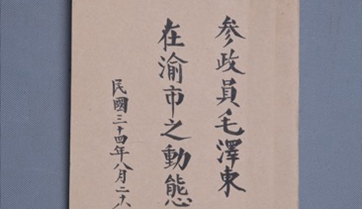 参政員毛澤東
在渝市之動態
民國三十四年八月二十八